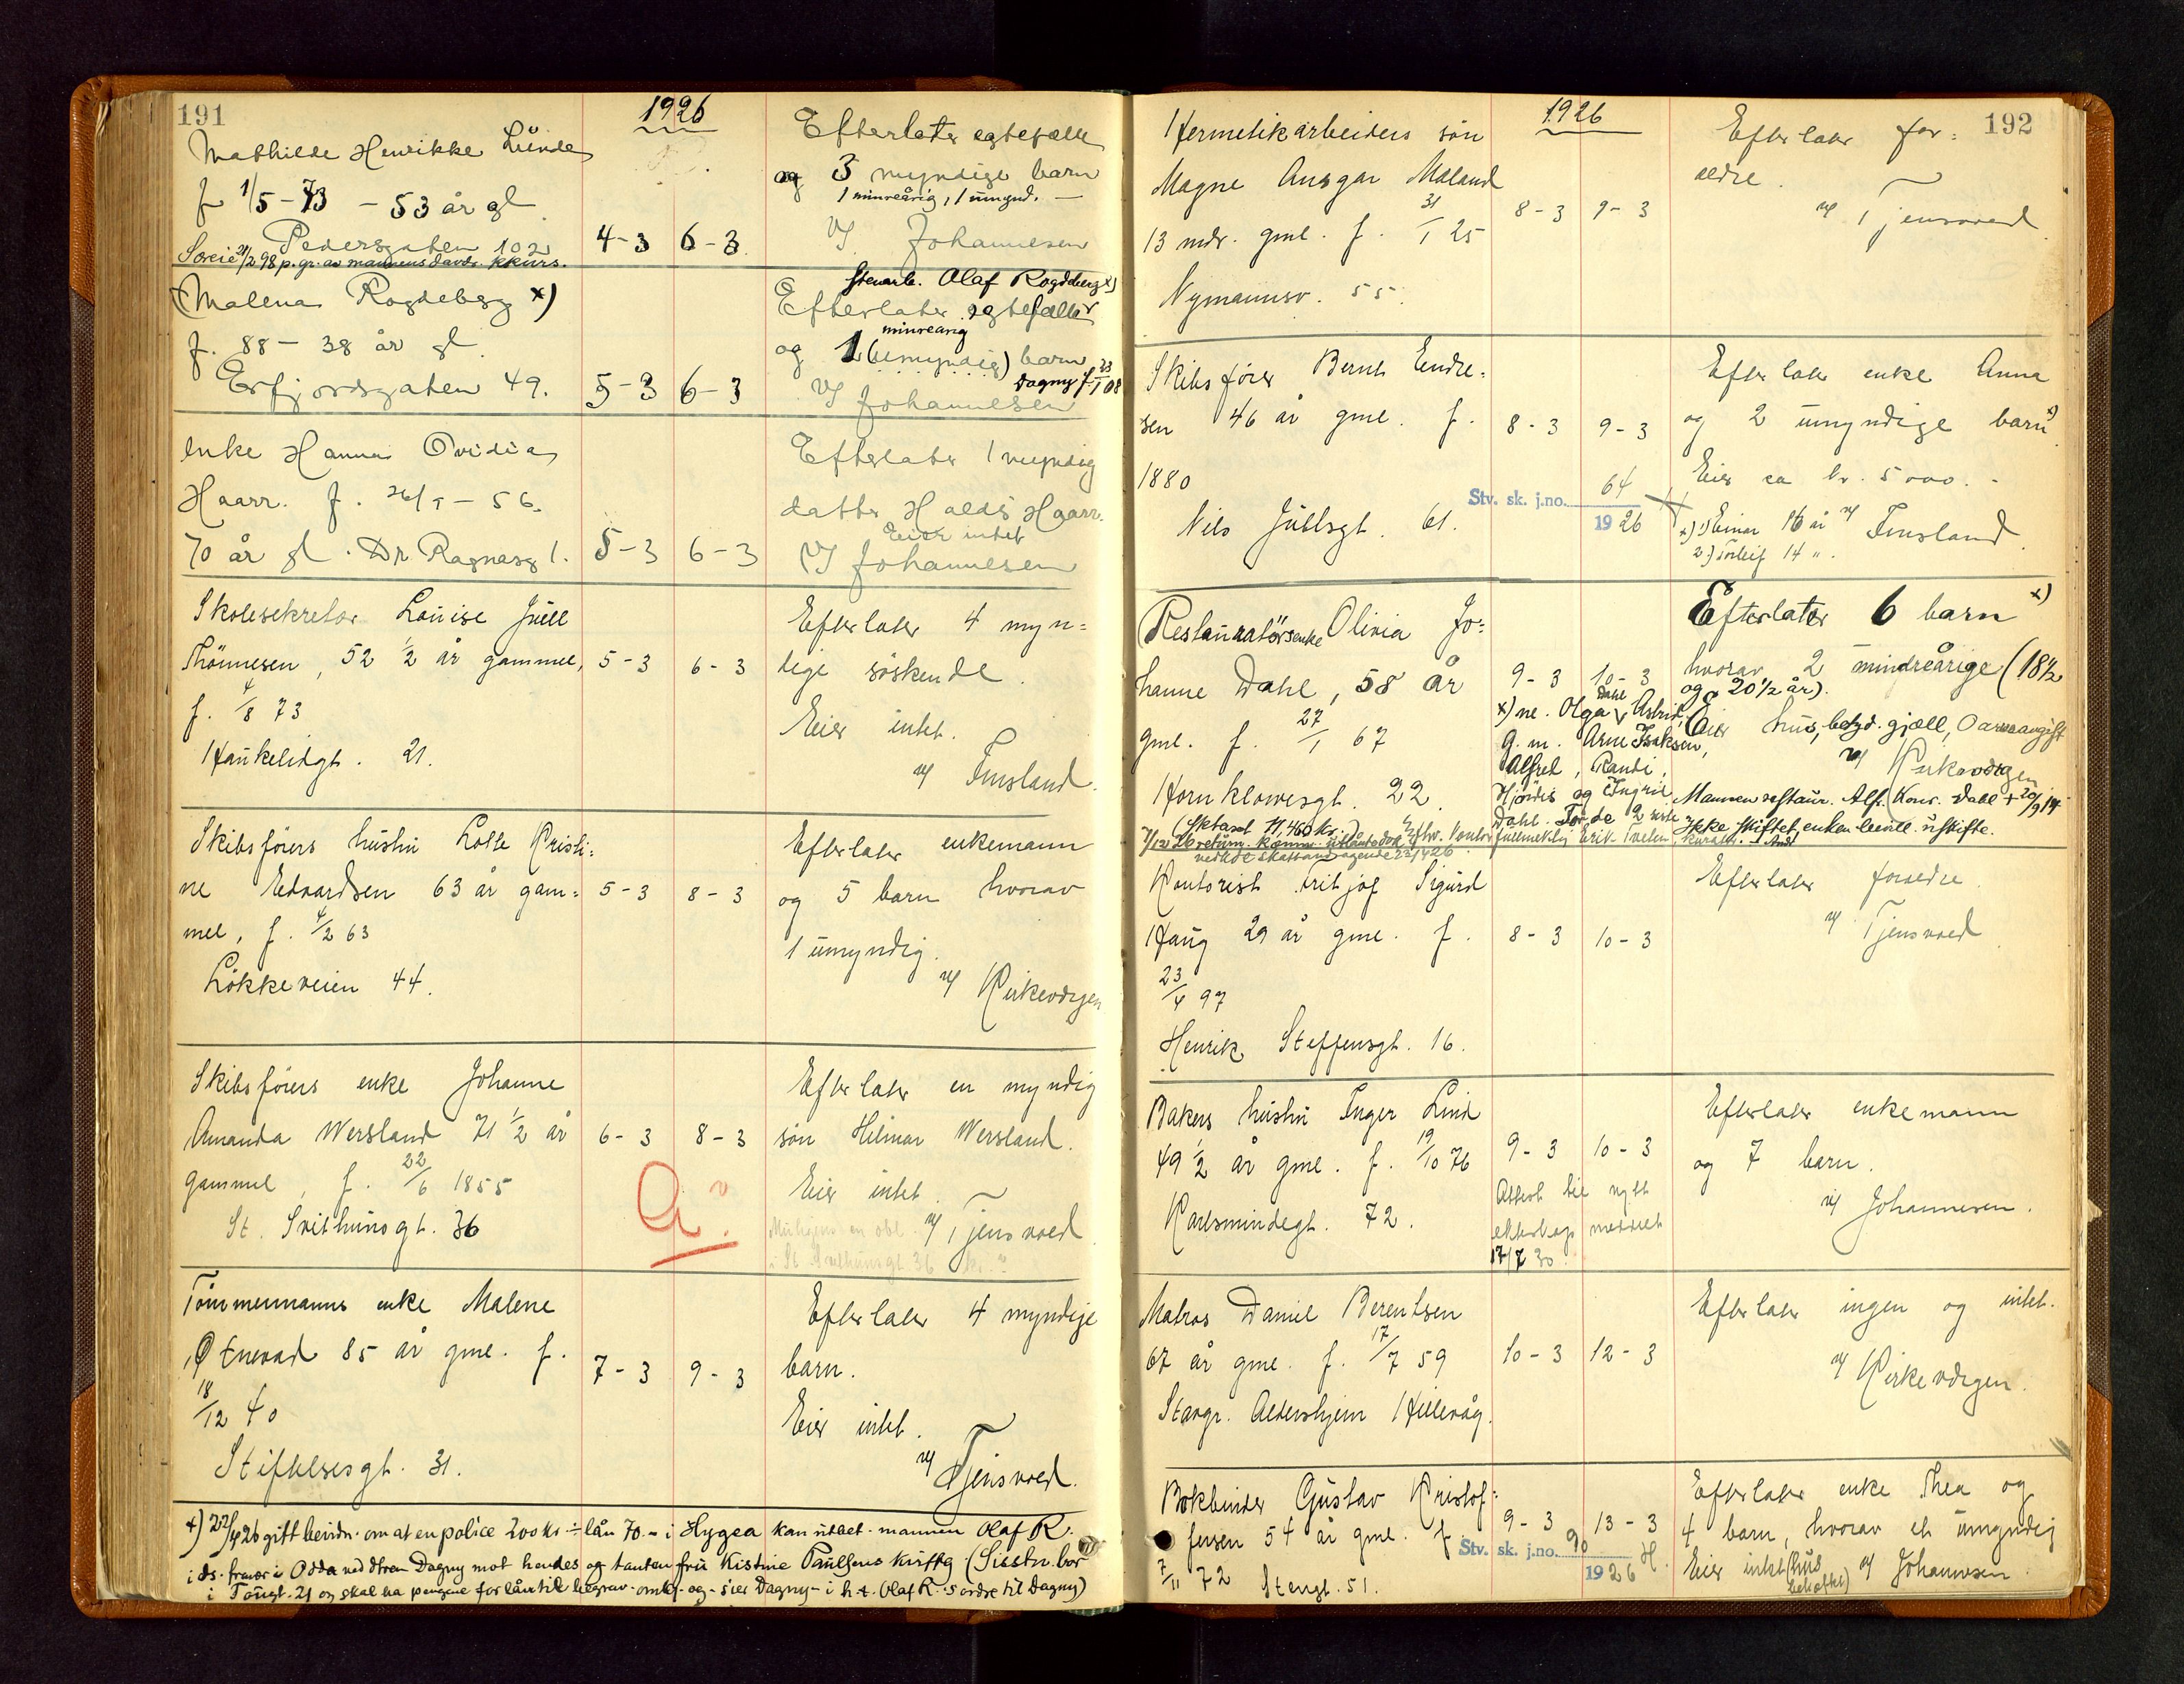 191
1926
Mathilde Henrikke Lünde
f 1/5-73 - 53 år gl
Pedersgaten 102
4-3 6-3
Efterlater egtefælle
og 3 myndige barn
1 minreårig, 1 ümynd.
Vf Johannesen
(Malena Rogdeberg x)
f. 88 - 38 år gl.
Erfjordsgaten 49.
5-3 6-3
Stenarb. Olaf Rogdeberg x)
Efterlater egtefæller
minreårig
og 1 (umyndig) barn
Dagny f. 23/1 08
Vf Johannesen
Enke Hanna Ovidia
Haarr. f. 26/5 - 56.
70 år gl. Dr Ragnasg 1.
5-3 6-3
Efterlater 1 myndig
datter Haldis Haarr.
Eier intet
Vf Johannesen
Skolesekretær Loüise Jüell
Thönnesen, 52 1/2 år gammel,
f. 4/8 73
Haükelidgt. 21.
5-3 6-3
Efterlater 4 myn=
dige søskende.
Eier intet.
Vf Finsland.
Skibsförers hüstrü Lotte Kristi=
ne Edvardsen 63 år gam=
mel, f. 4/2 63
Lökkeveien 44.
5-3 8-3
Efterlater enkemann
og 5 barn hvorav
1 ümyndig.
Vf Kirkevdgen
Skibsförers enke Johanne
Amanda Wersland 71 1/2 år
gammel, f. 22/6 1855
St. Svithünsgt. 36
6-3 8-3
Efterlater en myndig
sön Hilmar Wersland.
Eier intet.
Vf Tjensvoed
Tömmermanns enke Malene
Østnevad 85 år gme. f.
18/12 40
Stiftelsesgt. 31.
7-3 9-3
Efterlater 4 myndige
barn.
Eier intet.
Vf Tjensvoed.
x) 22/4 26 gift beirdr. om at en police 200 kr ÷ lån 70.- i Hygea kan ütbet. mannen Olaf R.
i ds. fravær i Odda ved dtren Dagny mot hendes og tanten frü Kistine Paülsens kvittg (Sisstn. bor
i Taügt. 21 og skal ha pengene for lån til begrav. omkg. og - sier Dagny - i h.t. Olaf R.s ordre til Dagny)
192
1926
Hermetikarbeiders sön
Magne Ansgar Maland
13 mdr. gml. f. 31/1 25
Nymannsv. 55.
8-3 9-3
Efterlater for=
ældre.
Vf Tjensvoed.
Skibsförer Bernt Endre=
sen 46 år gme. f.
1880
Nils Jüllsgt. 61.
8-3 9-3
Stv. sk. j.no. 64
1926
Efterlater enke Anna
og 2 ümyndige barn x)
Eier ca kr. 5000.-
x) 1) Einar 16 år Vf Finsland.
2) Torleif 14 ".
Restaüratörsenke Olivia Jo=
hanne Dahl, 58 år
gml. f. 27/1 67
Hornklovesgt. 22.
9-3 10-3
Efterlater 6 barn x)
hvorav 2 mindreårige (18 1/2
og 20 1/2 år).
Eier hüs, betyd. gjæll, 0 arveavgift
Vf Kirkevdgen
x) ne. Olga Dahl, Astrid,
g.m. Arne Isaksen,
Alfred, Randi,
Hjördis og Ingrid
Dahl. De 2 siste
Mannen restaür. Alf. Konr. Dahl + 20/9 14
Ikke skiftet, enken bevill. üskifte.
Kontorist Fritjof Sigürd
Haüg 29 år gme. f.
23/4 97
Henrik Steffensgt. 16.
8-3 10-3
Efterlater forældre.
Vf Tjensvoed
Bakers hüstrü Inger Lind
49 1/2 år gme. f. 19/10 76
Karlsmindegt. 72.
9-3 10-3
Attest til nytt
ekteskap meddelt
17/7 30.
Efterlater enkemann
og 7 barn.
Vf Johannesen.
Matros Daniel Berentsen
67 år gme. f. 17/7 59
Stavgr. Aldershjem Hillevåg.
10-3 12-3
Efterlater ingen og intet.
Vf Kirkevdgen.
Bokbinder Güstav Kristof=
fersen 54 år gme. f.
7/11 72 Stengt. 51.
9-3 13-3
Stv. sk. j.no. 90
1926
Efterlater enke Thea og
4 barn, hvorav et ümyndig
Eier intet (hüs
beheftet) Vf Johannesen